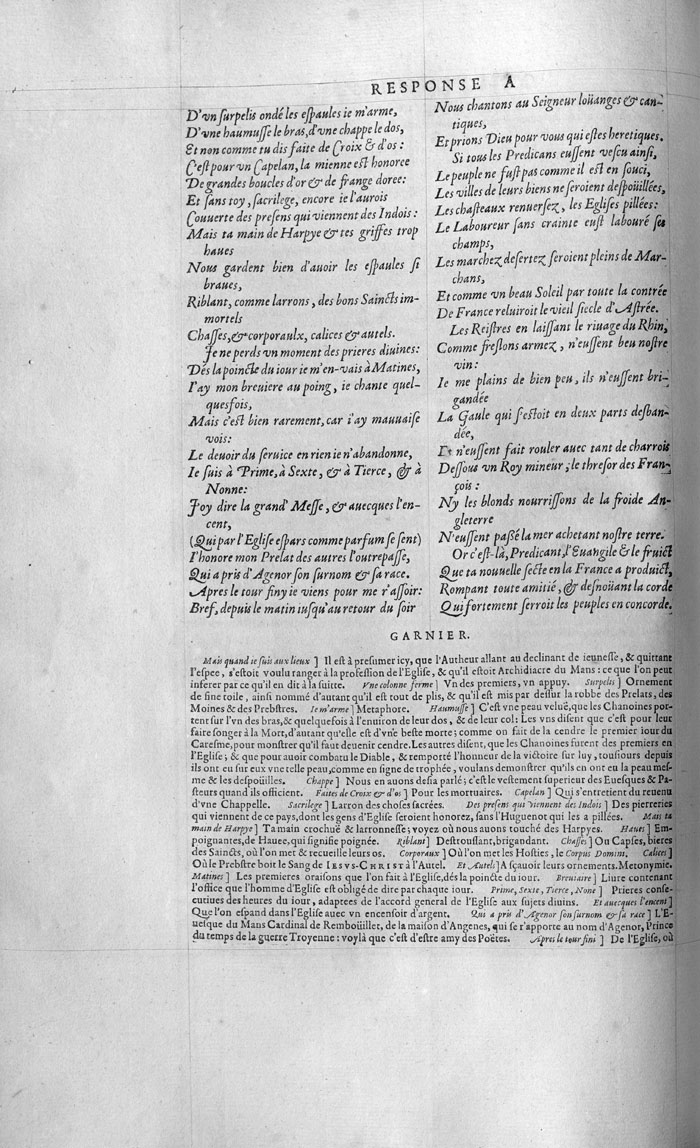 RESPONSE A
D'vn ſurpelis ondé les eſpaules ie m'arme,
D'vne haumuſſe le bras, d'vne chappe le dos,
Et non comme tu dis faite de Croix & d'os:
C'eſt pour vn Capelan, la mienne eſt honoree
De grandes boucles d'or & de frange doree:
Et ſans toy, ſacrilege, encore ie l'aurois
Couuerte des preſens qui viennent des Indois:
Mais ta main de Harpye & tes griffes trop
haues
Nous gardent bien d'auoir les eſpaules ſi
braues,
Riblant, comme larrons, des bons Sainčts im-
mortels
Chaſſes, & corporaulx, calices & autels.
Je ne perds vn moment des prieres diuines:
Dés la poinčte du iour ie m'en-vais à Matines,
I'ay mon breuiere au poing, ie chante quel-
quesfois,
Mais c'eſt bien rarement, car i'ay mauuaiſe
vois:
Le deuoir du ſeruice en rien ie n'abandonne,
Ie ſuis à Prime, à Sexte, & à Tierce, & à
Nonne:
J'oy dire la grand' Meſſe, & auecques l'en-
cent,
(Qui par l'Egliſe eſpars comme parfum ſe ſent)
I'honore mon Prelat des autres l'outrepaſſe,
Qui a pris d'Agenor ſon ſurnom & ſa race.
Apres le tour finy ie viens pour me r'aſſoir:
Bref, depuis le matin iuſqu'au retour du ſoir
Nous chantons au Seigneur loüanges & can-
tiques,
Et prions Dieu pour vous qui eſtes heretiques.
Si tous les Predicans euſſent veſcu ainſi,
Le peuple ne fuſt pas comme il eſt en ſouci,
Les villes de leurs biens ne ſeroient deſpoüillées,
Les chaſteaux renuerſez, les Egliſes pillées:
Le Laboureur ſans crainte euſt labouré ſes
champs,
Les marchez deſertez ſeroient pleins de Mar-
chans,
Et comme vn beau Soleil par toute la contrée
De France reluiroit le vieil ſiecle d'Aſtrée.
Les Reiſtres en laiſſant le riuage du Rhin,
Comme freſlons armez, n'euſſent beu noſtre
vin:
Ie me plains de bien peu, ils n'euſſent bri-
gandée
La Gaule qui ſ'eſtoit en deux parts desban-
dée,
Et n'euſſent fait rouler auec tant de charrois
Deſſous vn Roy mineur, le threſor des Fran-
çois:
Ny les blonds nourriſſons de la froide An-
gleterre
N'euſſent paßé la mer achetant noſtre terre.
Or c'eſt-là, Predicant, l'Euangile & le fruičt
Que ta nouuelle ſečte en la France a produičt,
Rompant toute amitié, & deſnoüant la corde
Qui fortement ſerroit les peuples en concorde.
GARNIER.
Mais quand ie ſuis aux lieux ] Il eſt à preſumer icy, que l'Autheur allant au declinant de ieuneſſe, & quittant
l'eſpee, s'eſtoit voulu ranger à la profeſſion de l'Egliſe, & qu'il eſtoit Archidiacre du Mans: ce que l'on peut
inferer par ce qu'il en dit à la ſuitte. Vne colonne ferme ] Vn des premiers, vn appuy. Surpelis ] Ornement
de fine toile, ainſi nommé d'autant qu'il eſt tout de plis, & qu'il eſt mis par deſſur la robbe des Prelats, des
Moines & des Prebſtres. Ie m'arme ] Metaphore. Haumuſſe ] C'eſt vne peau veluë, que les Chanoines por-
tent ſur l'vn des bras, & quelquefois à l'enuiron de leur dos, & de leur col: Les vns diſent que c'eſt pour leur
faire ſonger à la Mort, d'autant qu'elle eſt d'vne beſte morte; comme on fait de la cendre le premier iour du
Careſme, pour monſtrer qu'il faut deuenir cendre. Les autres diſent, que les Chanoines furent des premiers en
l'Egliſe; & que pour auoir combatu le Diable, & remporté l'honneur de la victoire ſur luy, touſiours depuis
ils ont eu ſur eux vne telle peau, comme en ſigne de trophée, voulans demonſtrer qu'ils en ont eu la peau meſ-
me & les deſpoüilles. Chappe ] Nous en auons deſia parlé; c'eſt le veſtement ſuperieur des Eueſques & Pa-
ſteurs quand ils officient. Faites de Croix & d'os ] Pour les mortuaires. Capelan ] Qui s'entretient du reuenu
d'vne Chappelle. Sacrilege ] Larron des choſes ſacrées. Des preſens qui viennent des Indois ] Des pierreries
qui viennent de ce pays, dont les gens d'Egliſe ſeroient honorez, ſans l'Huguenot qui les a pillées. Mais ta
main de Harpye ] Ta main crochuë & larronneſſe; voyez où nous auons touché des Harpyes. Haues ] Em-
poignantes, de Hauee, qui ſignifie poignée. Riblant ] Deſtrouſſant, brigandant. Chaſſes ] Ou Capſes, bieres
des Saincts, où l'on met & recueille leurs os. Corporaux ] Où l'on met les Hoſties, le Corpus Domini. Calices ]
Où le Prebſtre boit le Sang de IESVS-CHRIST à l'Autel. Et Autels ] A ſçauoir leurs ornements. Metonymie.
Matines ] Les premieres oraiſons que l'on fait à l'Egliſe, dés la poincte du iour. Breuiaire ] Liure contenant
l'office que l'homme d'Egliſe eſt obligé de dire par chaque iour. Prime, Sexte, Tierce, None ] Prieres conſe-
cutiues des heures du iour, adaptees de l'accord general de l'Egliſe aux ſujets diuins. Et auecques l'encent ]
Que l'on eſpand dans l'Egliſe auec vn encenſoit d'argent. Qui a pris d'Agenor ſon ſurnom & ſa race ] L'E-
ueſque du Mans Cardinal de Remboüillet, de la maiſon d'Angenes, qui ſe r'apporte au nom d'Agenor, Prince
du temps de la guerre Troyenne: voylà que c'eſt d'eſtre amy des Poëtes. Apres le tour fini ] De l'Egliſe, où